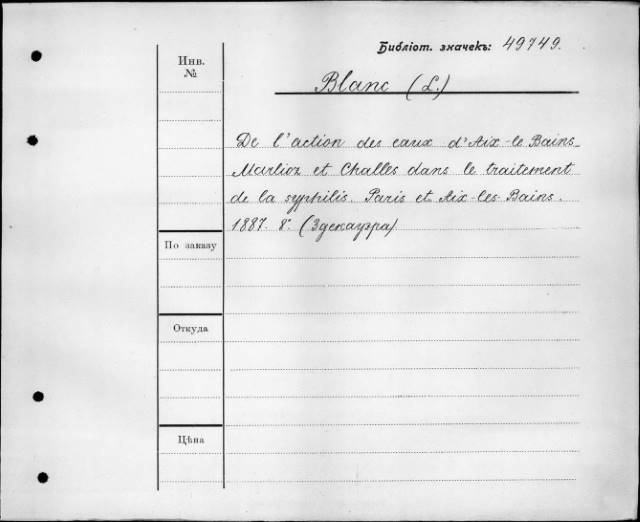 Библіот. значекъ: 49749.
Инв.
№
Blanc (L.)
De l'action des eaux d'Aix-le Bains
Marlioz et Challes dans le traitement
de la syphilis. Paris et Aix-les-Bains.
1887. 8°. (Здекауэра)
По заказу
Откуда
Цѣна